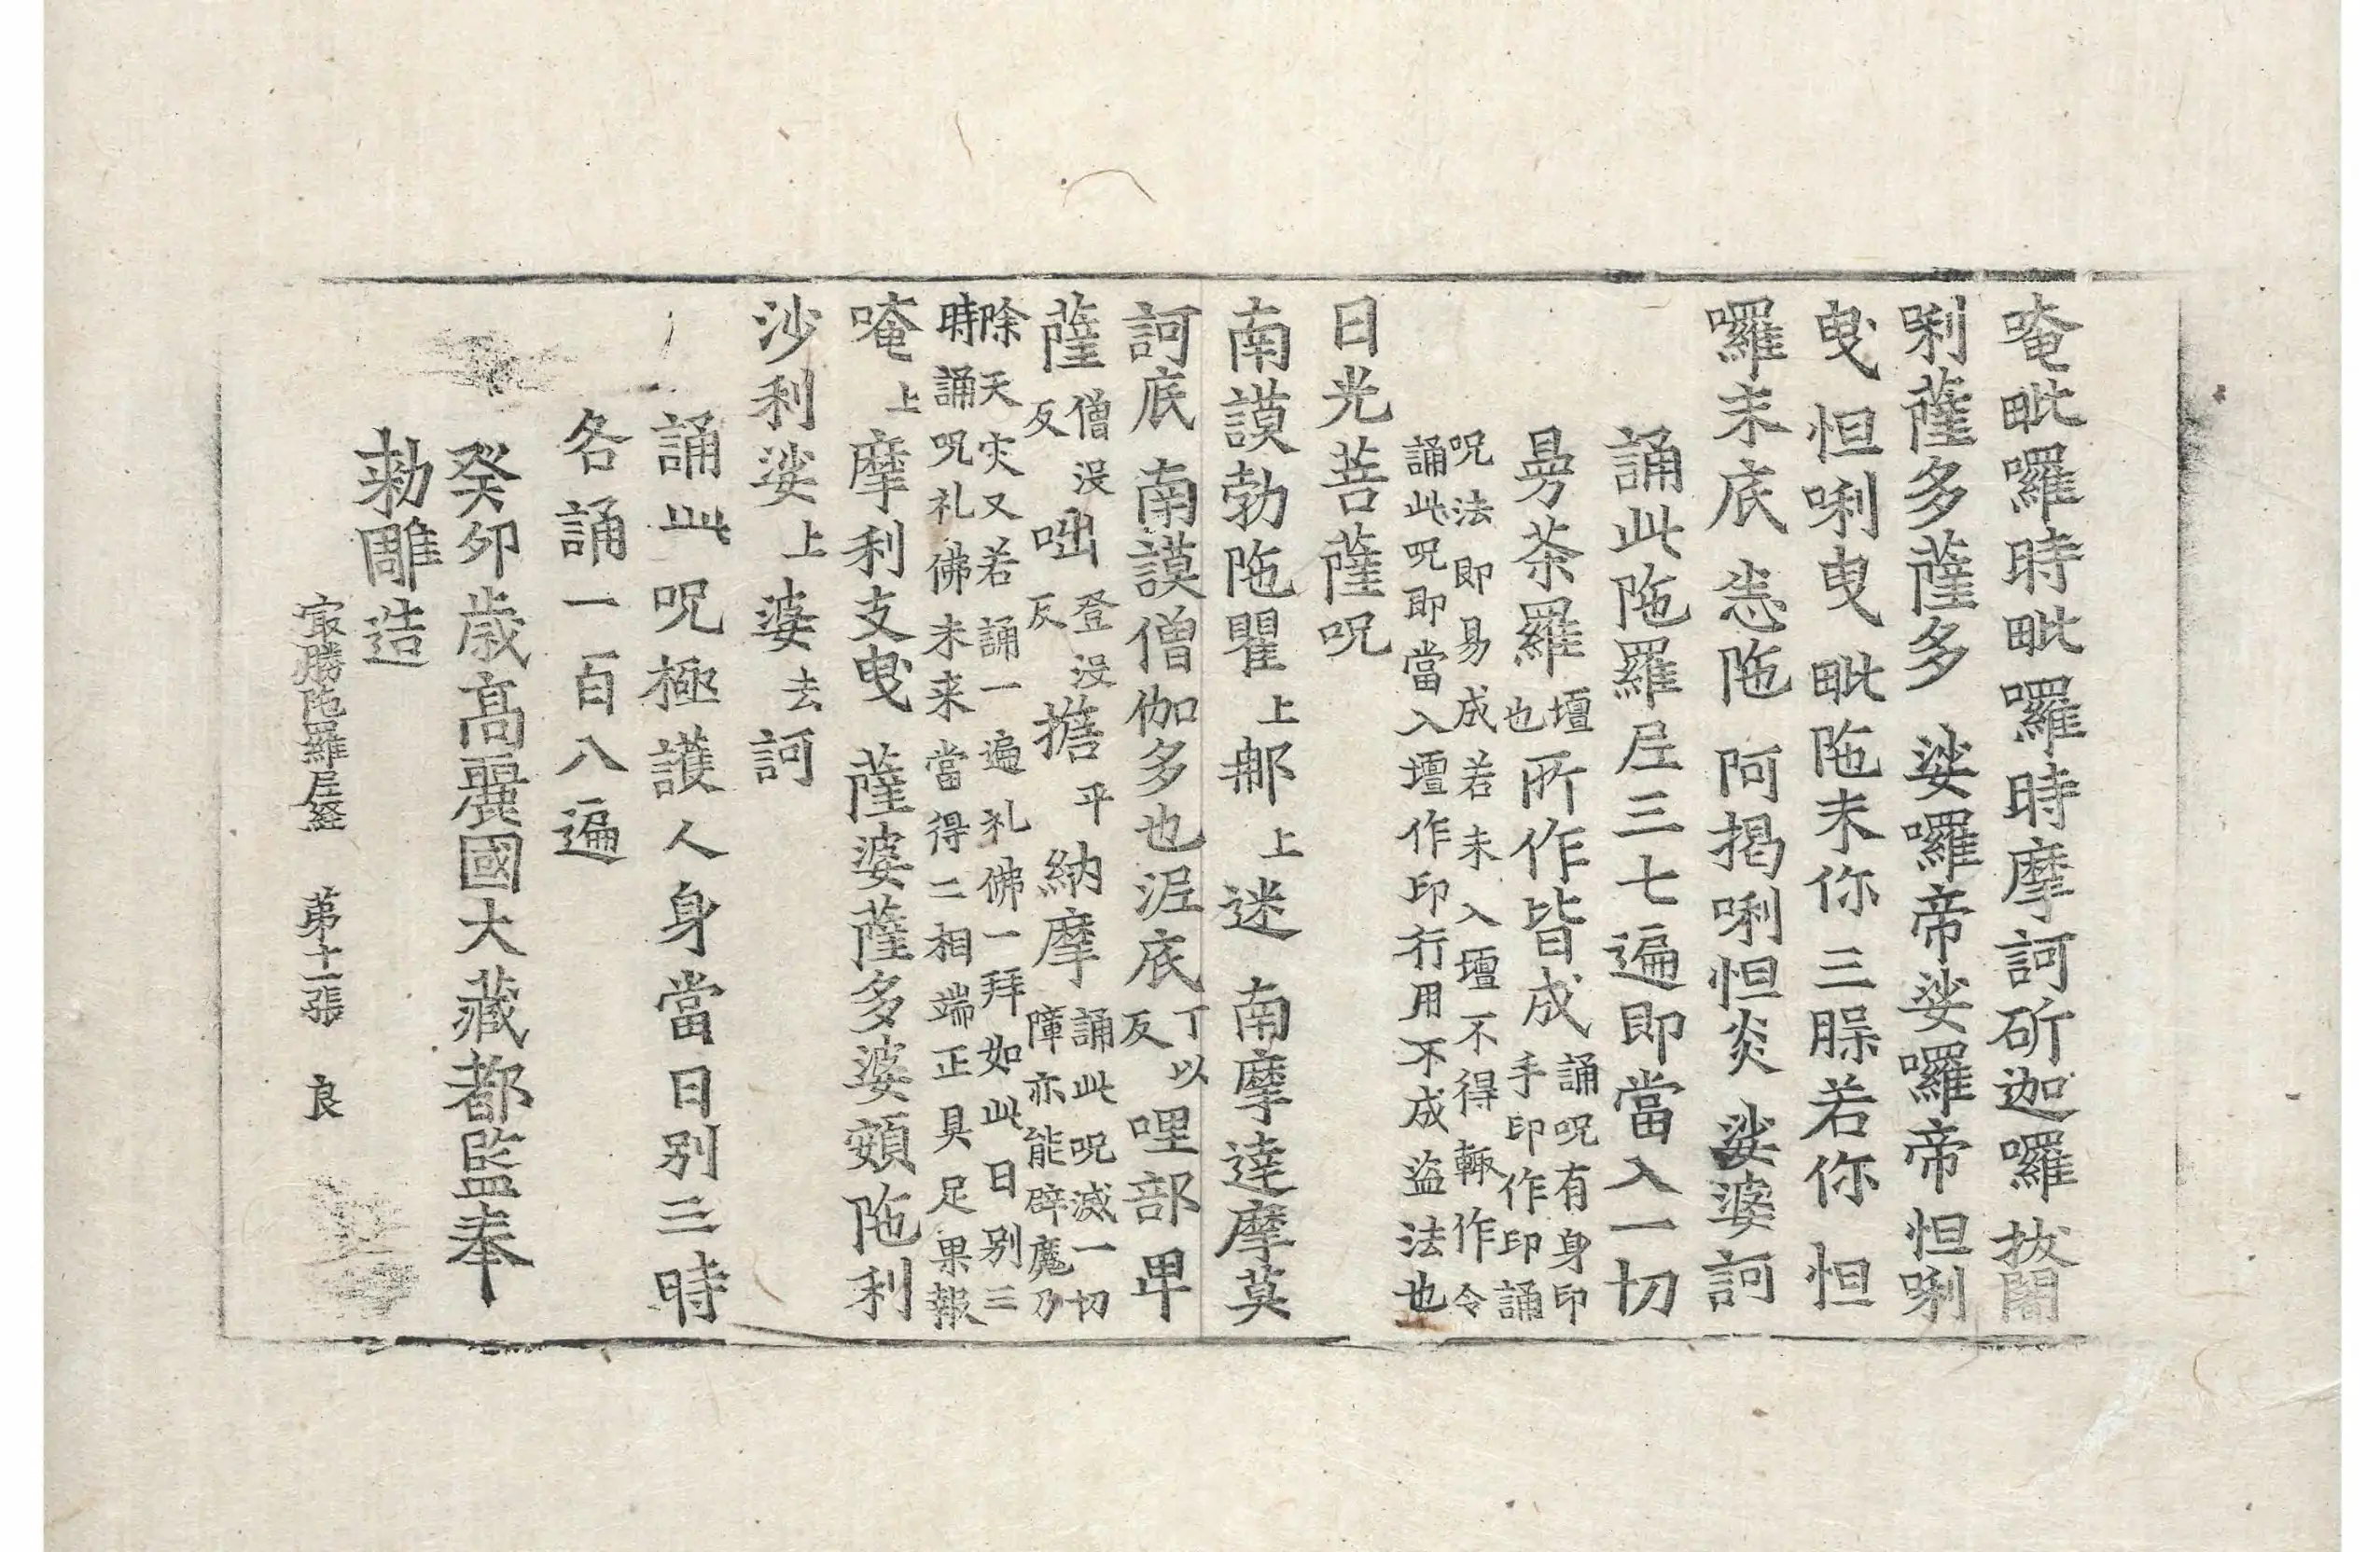 唵毗囉時毗囉時摩訶斫迦囉拔闍
唎薩多薩多 娑囉帝娑囉帝 怛唎
曳 怛唎曳 毗陁末你 三𦜕若你 怛
囉末底 恙陁 阿揭唎怛炎 娑婆訶
誦此陁羅尼三七遍即當入一切
曼荼羅壇也所作皆成誦呪有身印手印作印誦
呪法即易成若未入壇不得輙作令
誦此呪即當入壇作印行用不成盜法也
日光菩薩呪
南謨勃陁瞿上那上迷 南摩達摩莫
訶底 南謨僧伽多也泥底丁以反哩部畢
薩僧没反咄登没反擔平納摩誦此呪滅一切障亦能辟魔乃
除天灾又若誦一遍礼佛一拜如此日别三
時誦呪礼佛未来當得二相端正具足果報
唵上摩利支曳 薩婆薩多婆頞陁利
沙利娑上婆去訶
誦此呪極護人身當日别三時
各誦一百八遍
癸卯歳高麗國大藏都監奉
勅雕造
㝡勝陁羅尼経 苐十一張 良